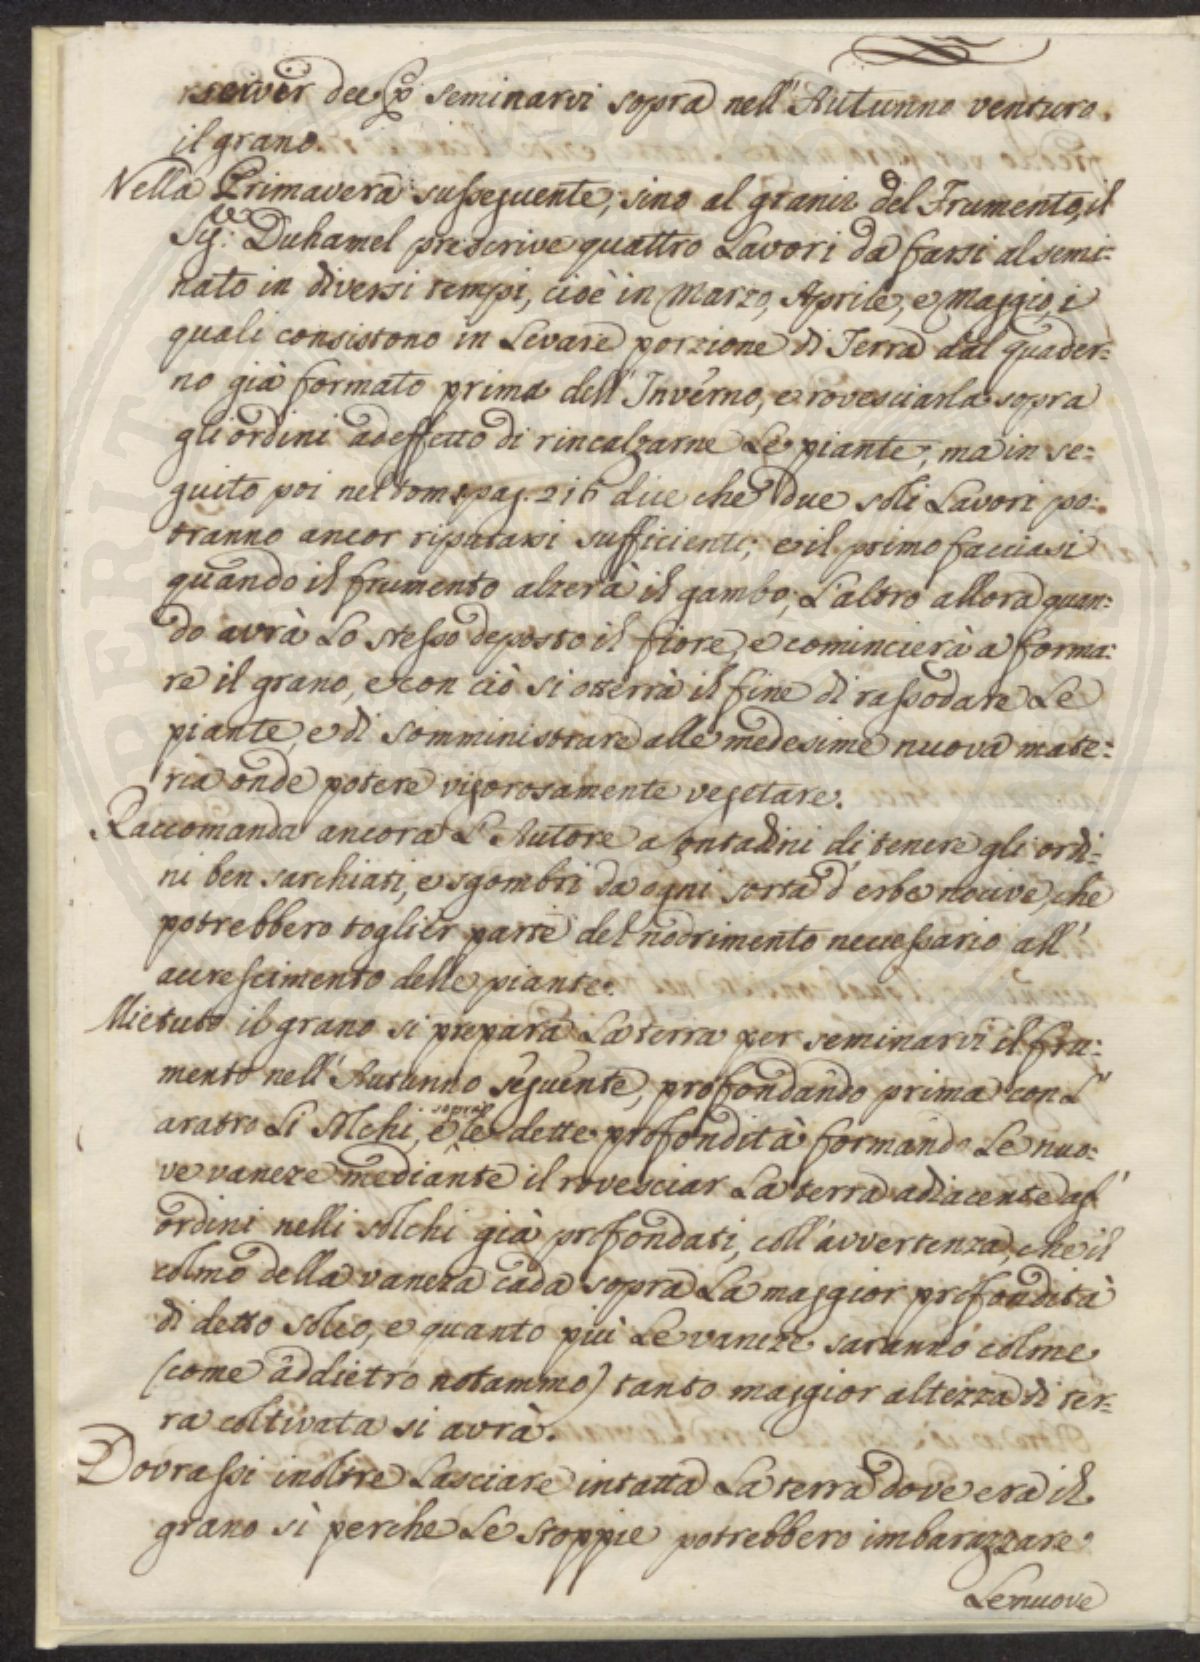 servir dee p seminarvi sopra nell'Autunno venturo
il grano.
Nella Primavera susseguente, sino al granir del Frumento, il
Sig:r Duhamel prescrive quattro Lavori da farsi al semi:
nato in diversi tempi, cioè in Marzo, Aprile, e Maggio, i
quali consistono in Levare porzione di Terra dal quader:
no già formato prima dell'Inverno, e rovesciarla sopra
gli ordini ad effetto di rincalzarne Le piante, ma in se:
guito poi nel tom: pag. 216 dice che due soli Lavori po:
tranno ancor riputarsi sufficienti, e il primo facciasi
quando il frumento alzerà il gambo; L'altro allora quan:
do avrà Lo stesso deposto il fiore, e comincierà a forma:
re il grano, e con ciò si otterrà il fine di rassodare Le
piante, e di somministrare alle medesime nuova mate:
ria onde potere vigorosamente vegetare.
Raccomanda ancora L'Autore a Contadini di tenere gli ordi:
ni ben sarchiati, e sgombri da ogni sorta d'erbe nocive, che
potrebbero toglier parte del nodrimento necessario all'
accrescimento delle piante.
Mietuto il grano si prepara La terra per seminarvi il fru:
mento nell'Autunno seguente, profondando prima con L'
aratro Li solchi, e sopra le dette profondità formando Le nuo:
ve vaneze mediante il rovesciar La terra adiacente agl'
ordini nelli solchi già profondati, coll'avvertenza, che il
colmo della vaneza cada sopra La maggior profondità
di detto solco, e quanto più Le vaneze saranno colme
(come addietro notammo) tanto maggior altezza di ter:
ra coltivata si avrà.
Dovrassi inoltre Lasciare intatta La terra dove era il
grano sì perche Le stoppie potrebbero imbarazzare
Le nuove